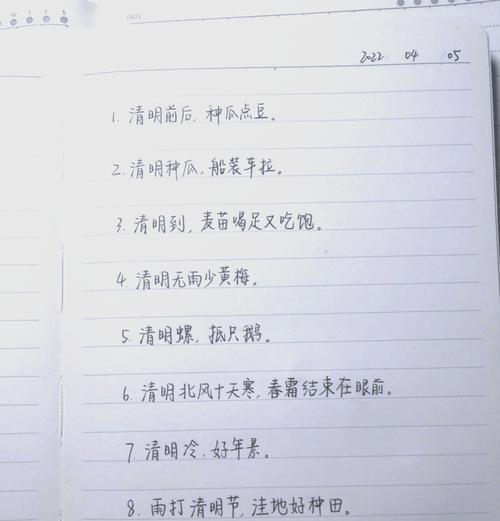 DATE
2022 04 05
1. 清明前后，种瓜点豆。
2. 清明种瓜，船装车拉。
3. 清明到，麦苗喝足又吃饱。
4. 清明无雨少黄梅。
5. 清明螺，抵只鹅。
6. 清明北风十天寒，春霜结束在眼前。
7. 清明冷，好年景。
8. 雨打清明节，洼地好种田。